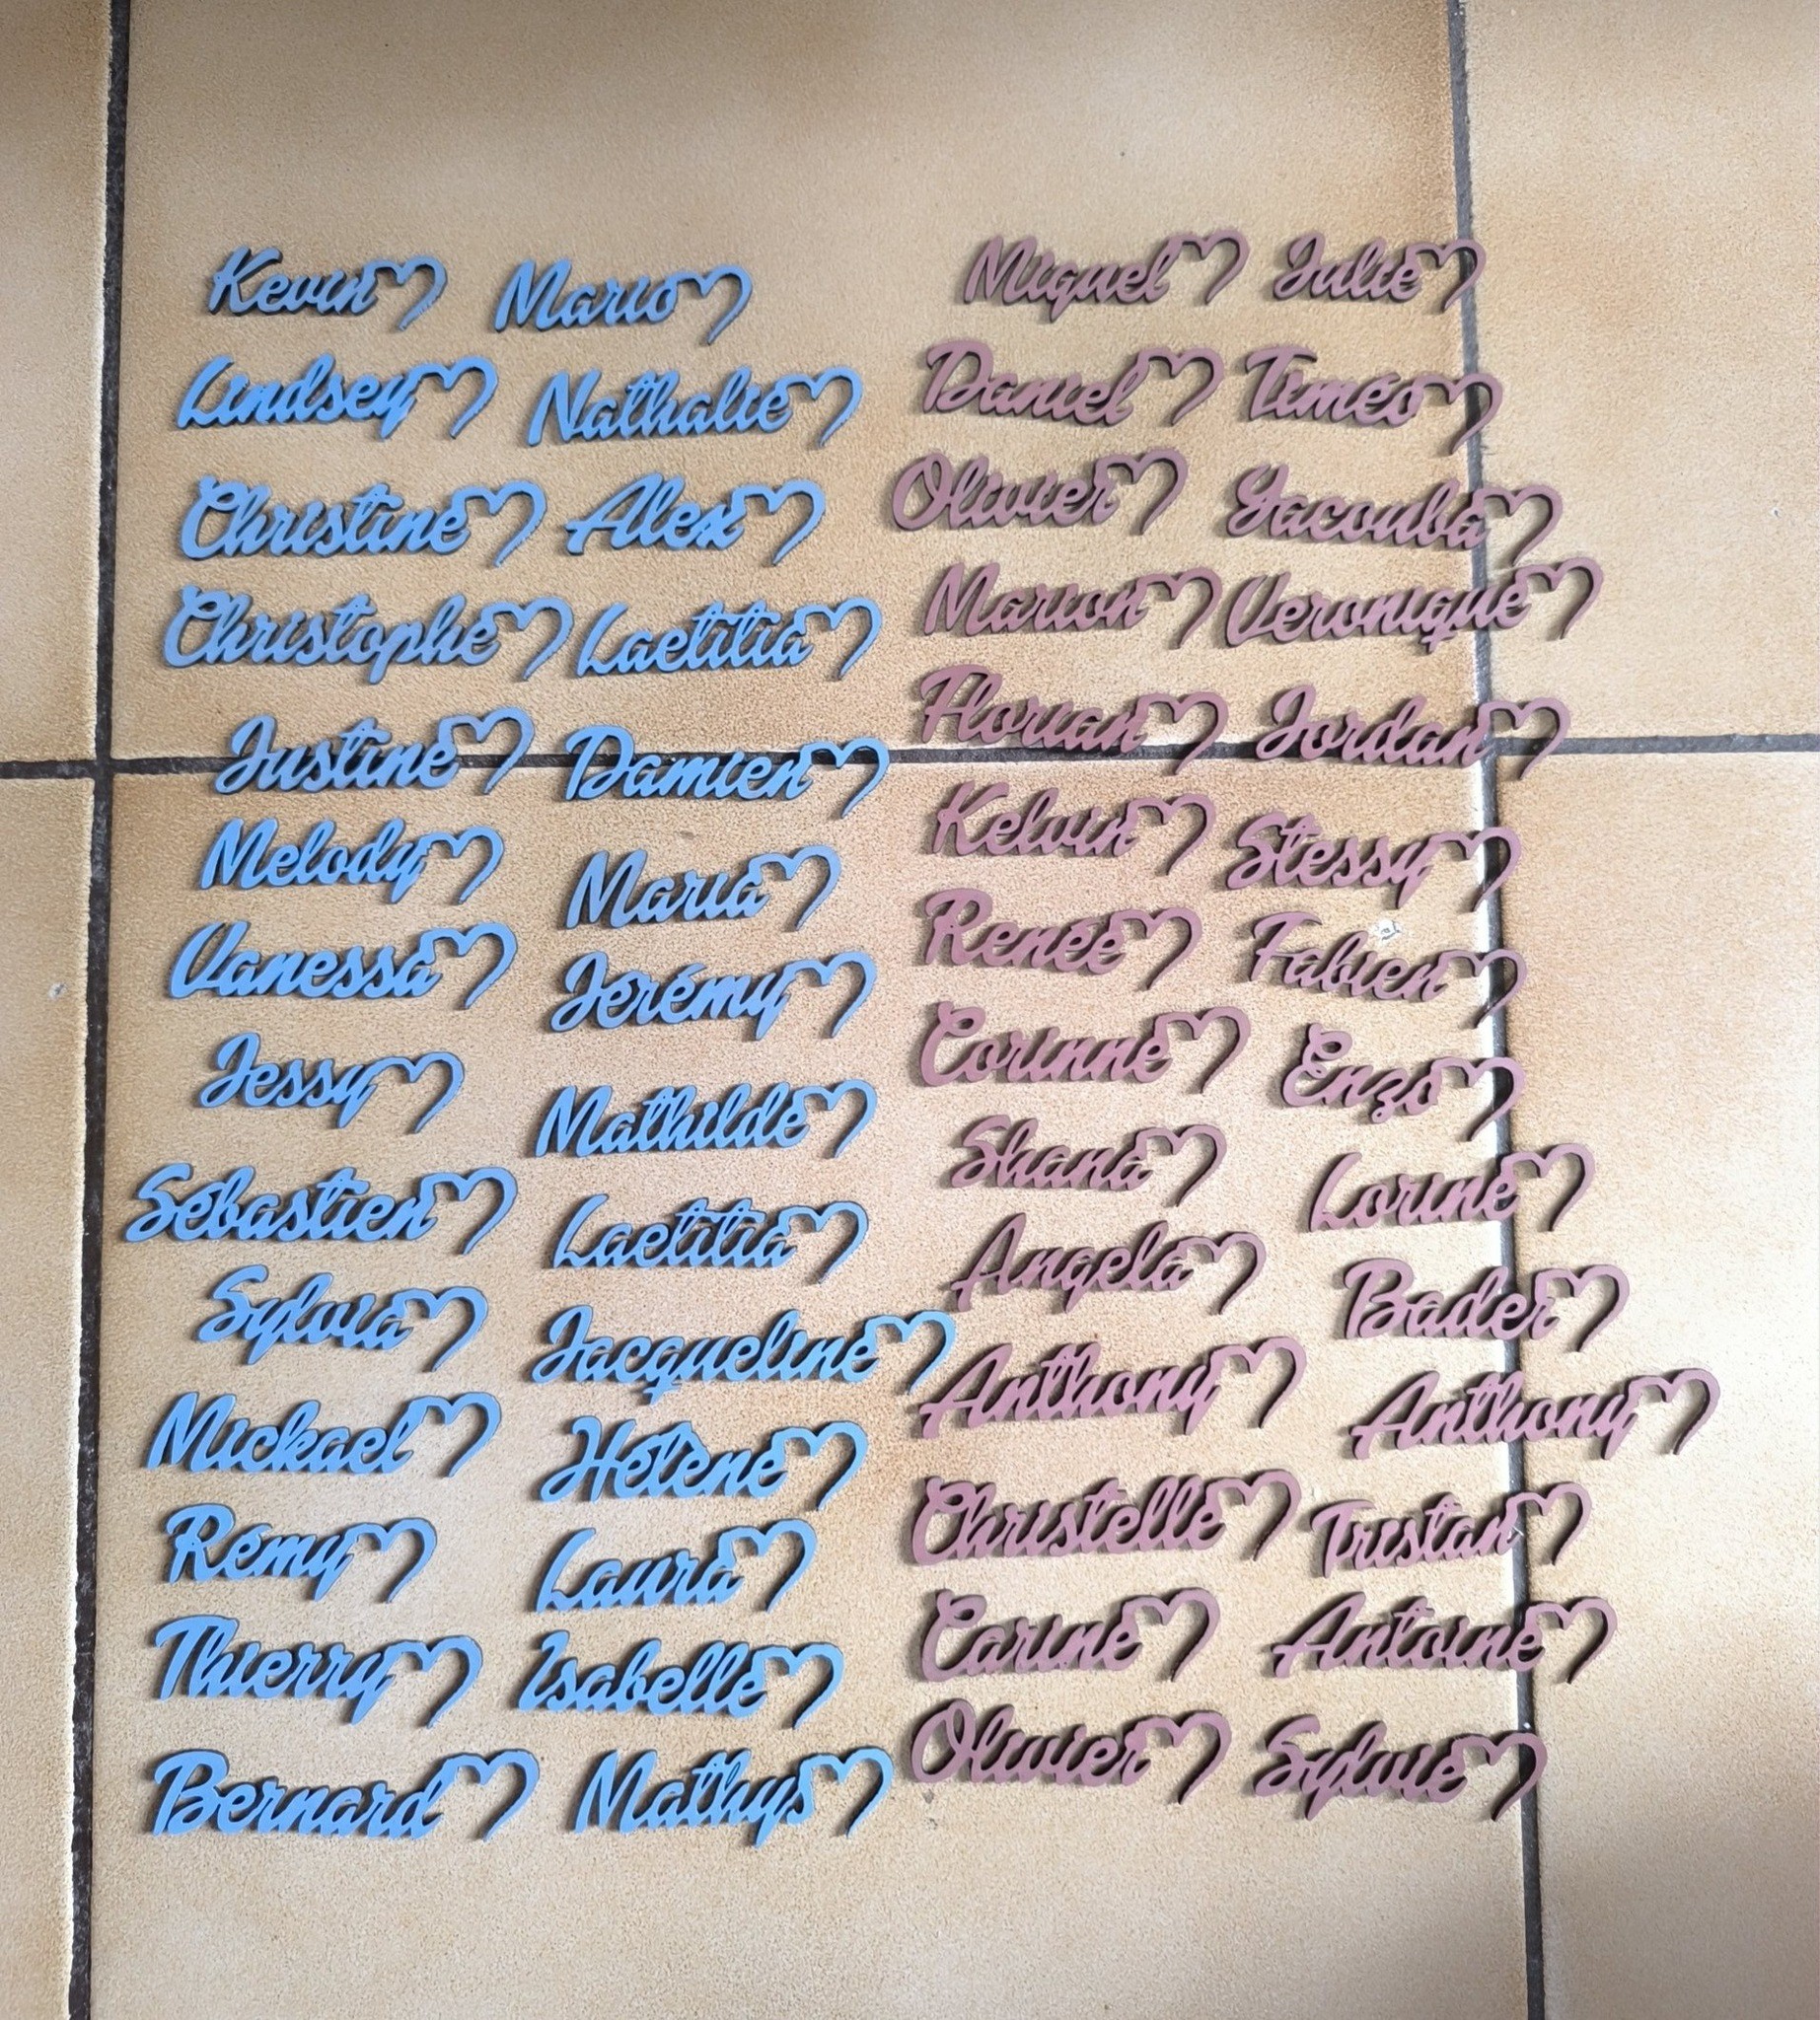 Kevin Mario
Lindsey Nathalie
Christine Alex
Christophe Laetitia
Justine Damien
Melody Maria
Vanessa Jérémy
Jessy Mathilde
Sébastien Laetitia
Sylvia Jacqueline
Mickael Hélène
Rémy Laura
Thierry Isabelle
Bernard Mathys
Miguel Julie
Daniel Timéo
Olivier Yacouba
Marion Veronique
Florian Jordan
Kelvin Stessy
Renée Fabien
Corinne Enzo
Shana Lorine
Angela Bader
Anthony Anthony
Christelle Tristan
Carine Antoine
Olivier Sylvie